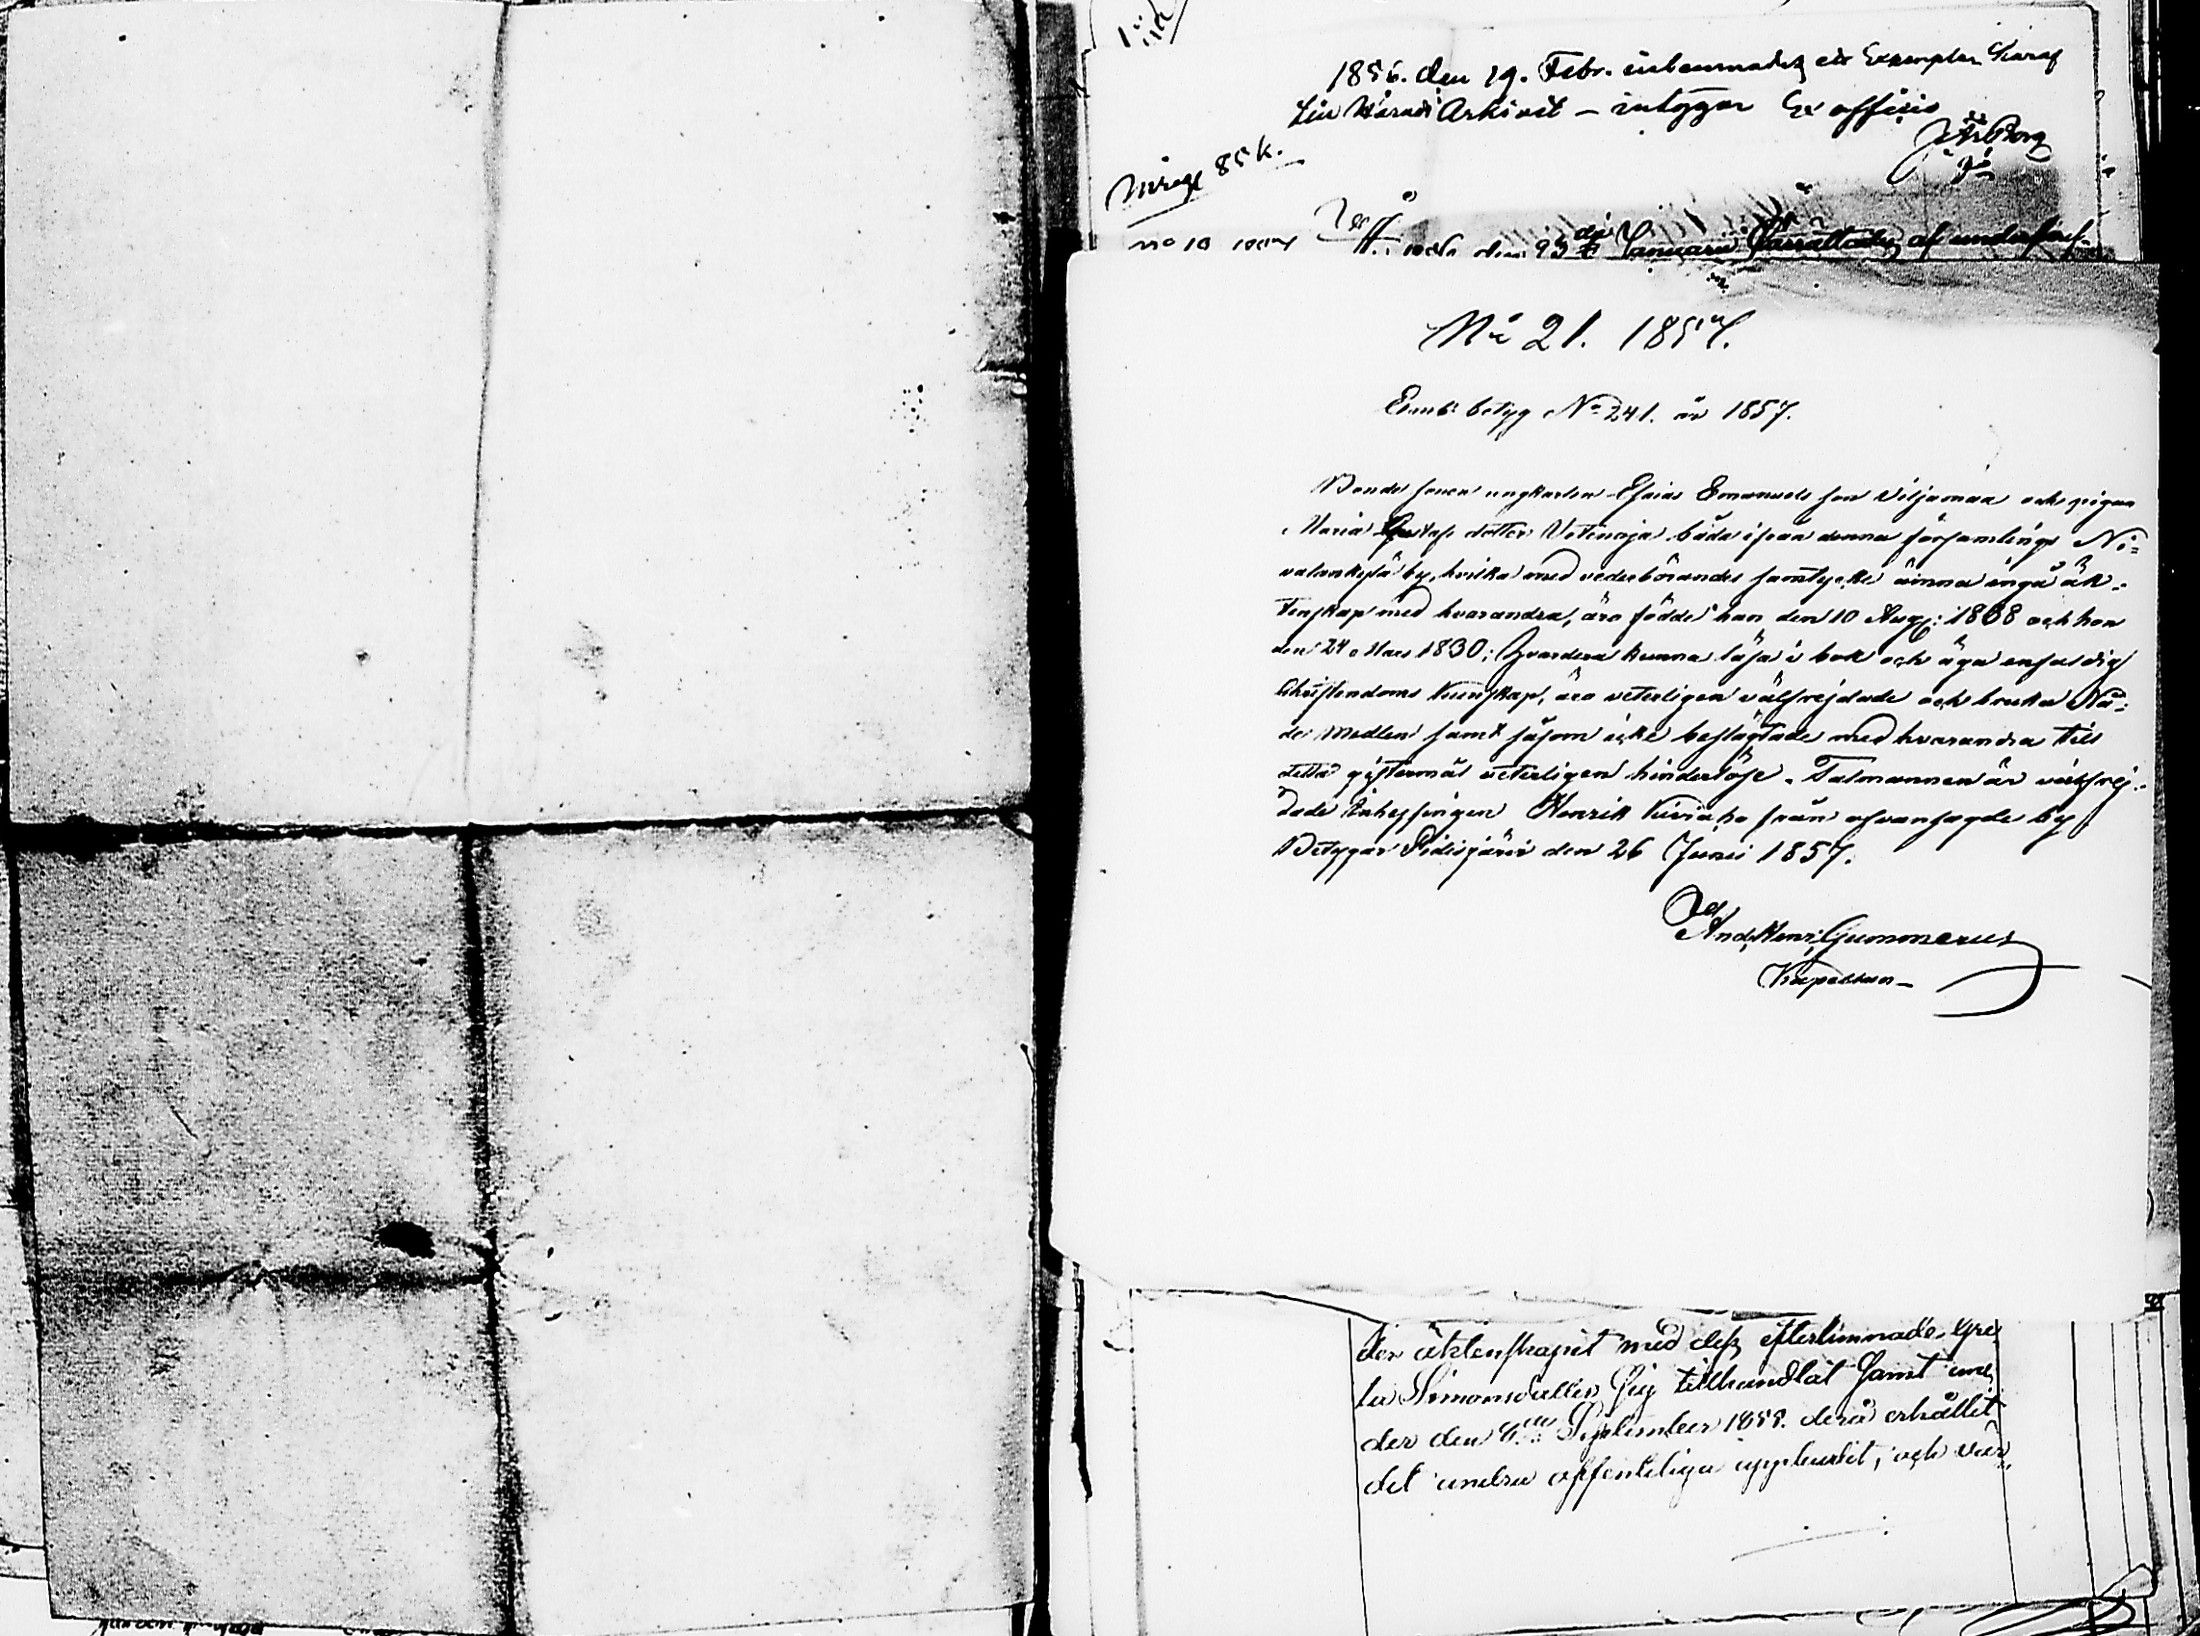 1856. den 19. Febr. inlemnades ett Exemplar häraf
till Härads Arkivet – intygar Ex officio
85 k.
den 23 Januarii förrättades af underskref-
No 21. 1857.
Embs betyg No 241. år 1857.
Bonde sonen ungkarlen Esaias Emanuels son Viljamaa och pigan
Maria Gustafs dotter Vetenoja båda ifrån denna församlings Ni=
valankylä by, hvilka med vederbörandes samtycke ämna ingå äk-
tenskap med hvarandra, äro födde han den 10 Aug: 1838 och hon
den 24 Mars 1830; Hvardera kunna läsa i bok och äga enfaldig
Christendoms kunskap, äro veterligen välfrejdade och bruka Nå-
de Medlen samt såsom icke beslägtade med hvarandra till
detta giftermål veterligen hinderlöse. Talmannen är välfrej-
dade Inhysingen Henrik Kiviaho från ofvansagde by.
Betygar Pidisjärvi den 26 Junii 1857.
And. Henr. Gummerus
Kapellan
der äktenskapet med dess efterlemnade Gre
ta Simonsdotter sig tillhandlat samt un
der den 4de September 1855. derå erhållit
det andra offentliga uppbudet, och vär